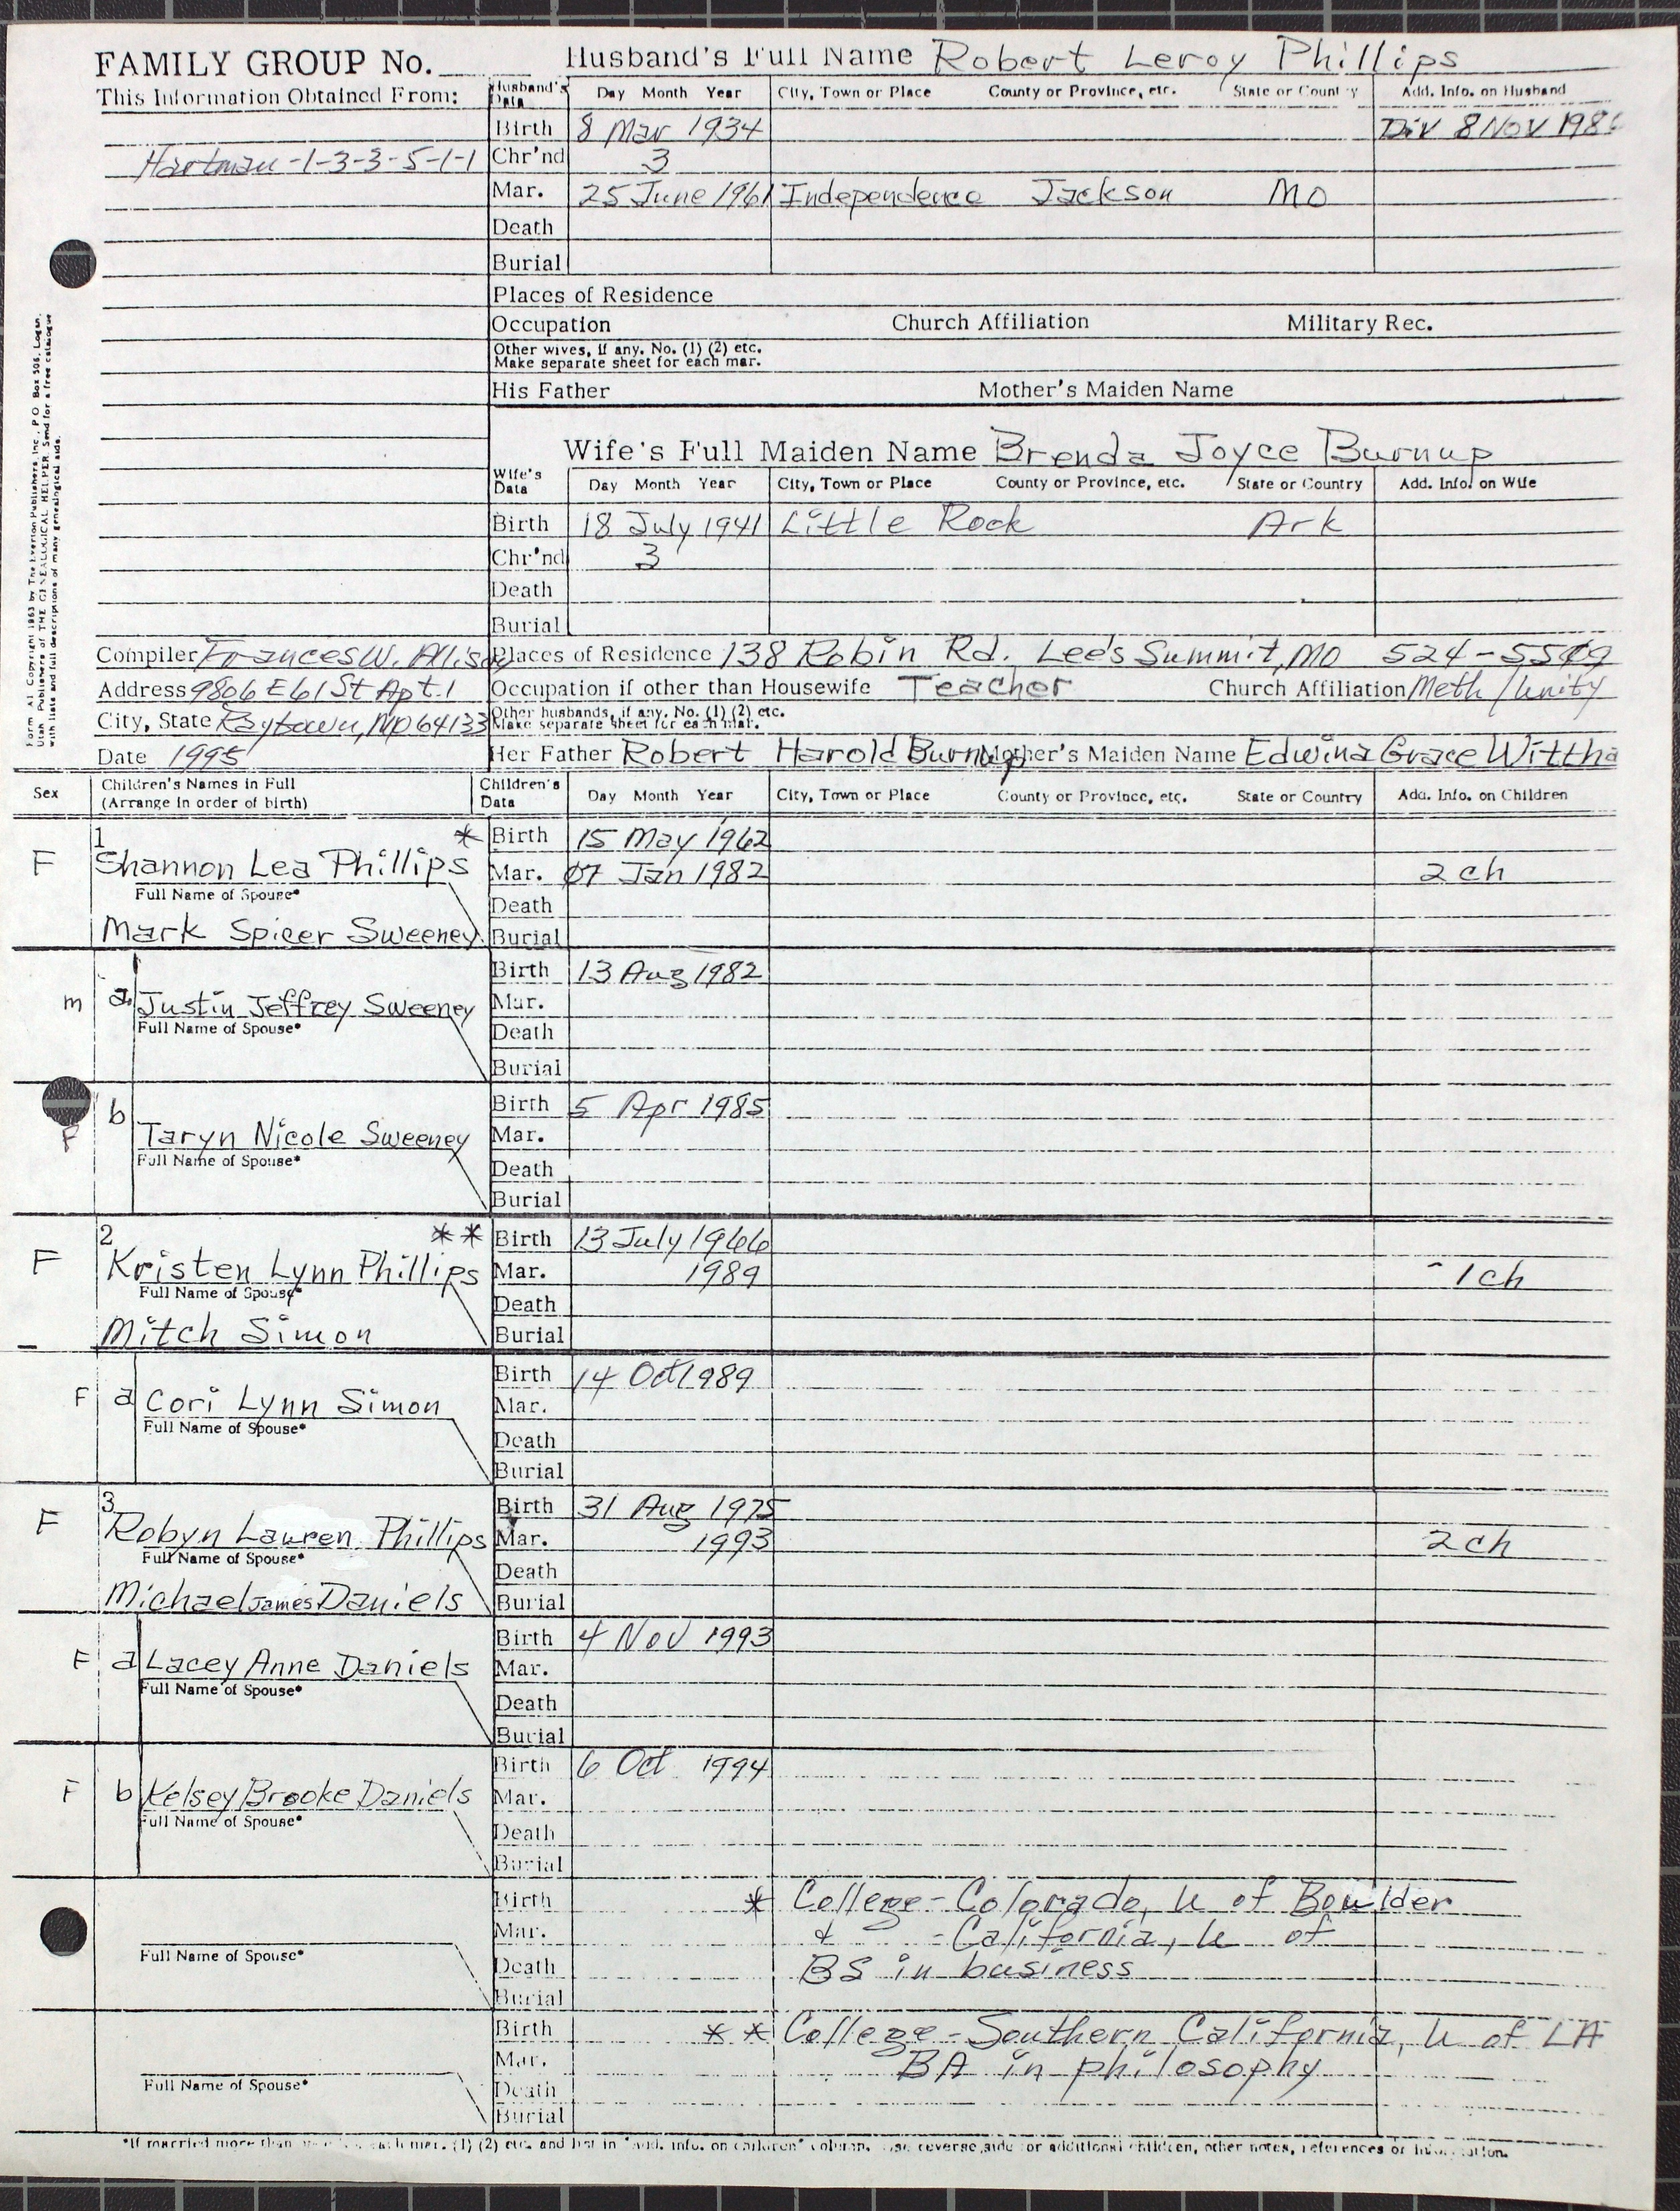 FAMILY GROUP No.
Husband's Full Name Robert Leroy Phillips
This Information Obtained From:
Husband's Data Day Month Year City, Town or Place County or Province, etc. State or Country Add. Info. on Husband
Birth 8 Mar 1934 Div 8 Nov 198
Hartman-1-3-3-5-1-1
Chr'nd 3
Mar. 25 June 1961 Independence Jackson MO
Death
Burial
Places of Residence
Occupation Church Affiliation Military Rec.
Other wives, if any. No. (1) (2) etc.
Make separate sheet for each mar.
His Father Mother's Maiden Name
Form A1 Copyright 1963 by The Everton Publishers, Inc., P.O. Box 506, Logan,
Utah Publishers of THE GENEALOGICAL HELPER. Send for a free catalogue
with lists and full descriptions of many genealogical aids.
Wife's Full Maiden Name Brenda Joyce Burnup
Wife's Data Day Month Year City, Town or Place County or Province, etc. State or Country Add. Info. on Wife
Birth 18 July 1941 Little Rock Ark
Chr'nd 3
Death
Burial
Compiler Frances W. Allison Places of Residence 138 Robin Rd. Lee's Summit, MO 524-
Address 9806 E 61 St Apt. 1 Occupation if other than Housewife Teacher Church Affiliation Meth/Unity
City, State Raytown, MO 64133 Other husbands, if any. No. (1) (2) etc.
Make separate sheet for each mar.
Date 1995 Her Father Robert Harold Burnup Mother's Maiden Name Edwina Grace Wittha
Sex Children's Names in Full
(Arrange in order of birth)
Children's Data Day Month Year City, Town or Place County or Province, etc. State or Country Add. Info. on Children
1 * Birth 15 May 1962
F Shannon Lea Phillips Mar. 07 Jan 1982 2 ch
Full Name of Spouse* Death
Mark Spicer Sweeney Burial
Birth 13 Aug 1982
m a. Justin Jeffrey Sweeney Mar.
Full Name of Spouse* Death
Burial
b Birth 5 Apr 1985
F Taryn Nicole Sweeney Mar.
Full Name of Spouse* Death
Burial
2 ** Birth 13 July 1966
F Kristen Lynn Phillips Mar. 1989 1 ch
Full Name of Spouse* Death
Mitch Simon Burial
Birth 14 Oct 1989
F a Cori Lynn Simon Mar.
Full Name of Spouse* Death
Burial
3 Birth 31 Aug 1975
F Robyn Lauren Phillips Mar. 1993 2 ch
Full Name of Spouse* Death
Michael James Daniels Burial
Birth 4 Nov 1993
F a Lacey Anne Daniels Mar.
Full Name of Spouse* Death
Burial
Birth 6 Oct 1994
F b Kelsey Brooke Daniels Mar.
Full Name of Spouse* Death
Burial
Birth * College-Colorado, U of Boulder
Mar. & -California, U of
Full Name of Spouse* Death BS in business
Burial
Birth ** College-Southern California, U of LA
Mar. BA in philosophy
Full Name of Spouse* Death
Burial
*If married more than each mar. (1) (2) etc. and list in "add. info. on children" column. Use reverse side for additional children, other notes, references or information.